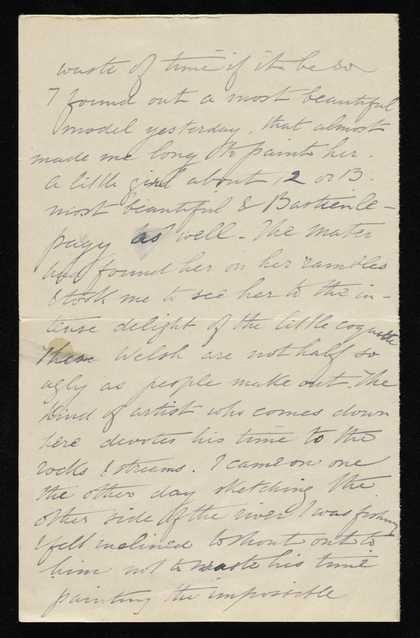 waste of time if it be so
I found out a most beautiful
model yesterday, that almost
made me long to paint her.
A little girl about 12 or 13.
most beautiful & Bastien le-
pagy as well - The Mater
had found her on her rambles
& took me to see her to the in-
tense delight of the little coquette
These Welsh are not half so
ugly as people make out. The
kind of artist who comes down
here devotes his time to the
rocks & streams. I came on one
the other day sketching the
other side of the river I was fishing
& felt inclined to shout out to
him not to waste his time
painting the impossible